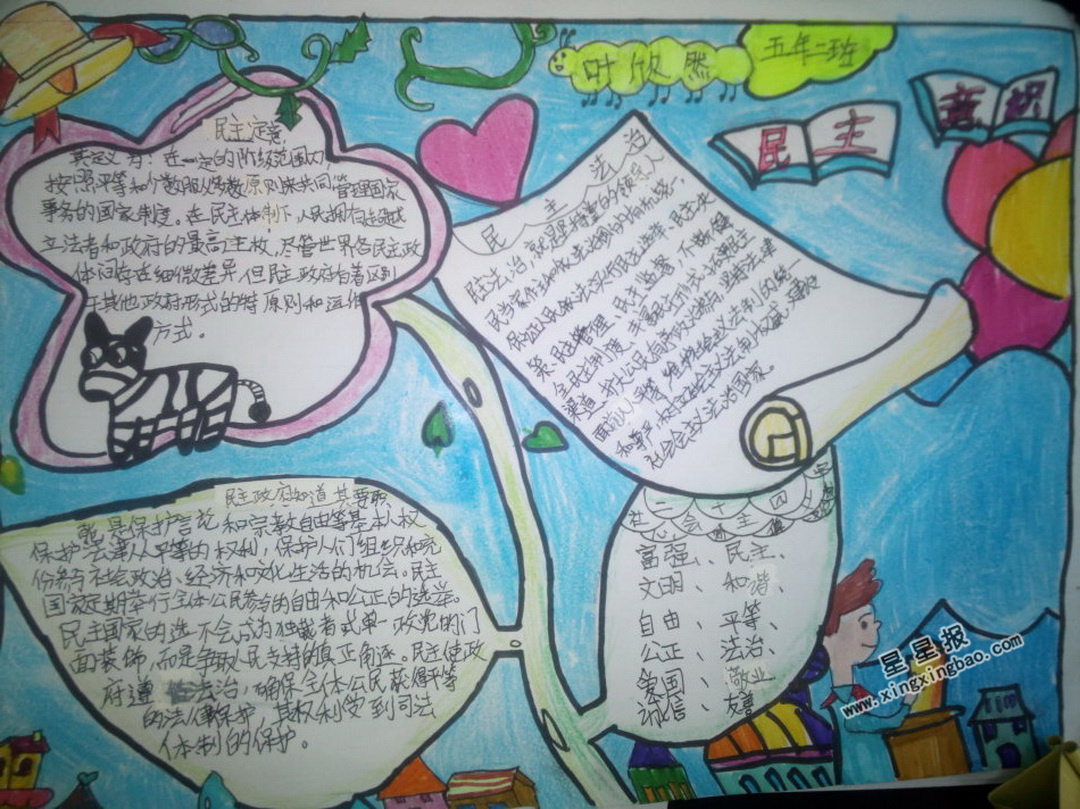 叶欣然
五年二班
民主
意识
民主定义
其定义为：在一定的阶级范围内
按照平等和少数服从多数原则来共同管理国家
事务的国家制度。在民主体制下，人民拥有超越
立法者和政府的最高主权，尽管世界各民主政
体间存在细微差异，但民主政府有着区别
于其他政府形式的特原则和运作
方式。
民主法治
民主法治，就是坚持党的领导、人
民主决
策、民主管理、民主监督，
社会主义法治国家。
民主政府知道其要职
就是保护言论和宗教自由等基本人权
保护法津人人平等的权利，保护人们组织和充
份参与社会政治、经济和文化生活的机会。民主
国家定期举行全体公民参与的自由和公正的选举。
民主国家的选不会成为独裁者或单一政党的门
面装饰，而是争取人民支持的真正角逐。民主使政
府遵 法治，确保全体公民获得平等
的法律保护，其权利受到司法
体制的保护。
二十四
社会主义
富强、民主、
文明、和谐、
自由、平等、
公正、法治、
爱国、敬业
诚信、友善
星星报
www.xingxingbao.com